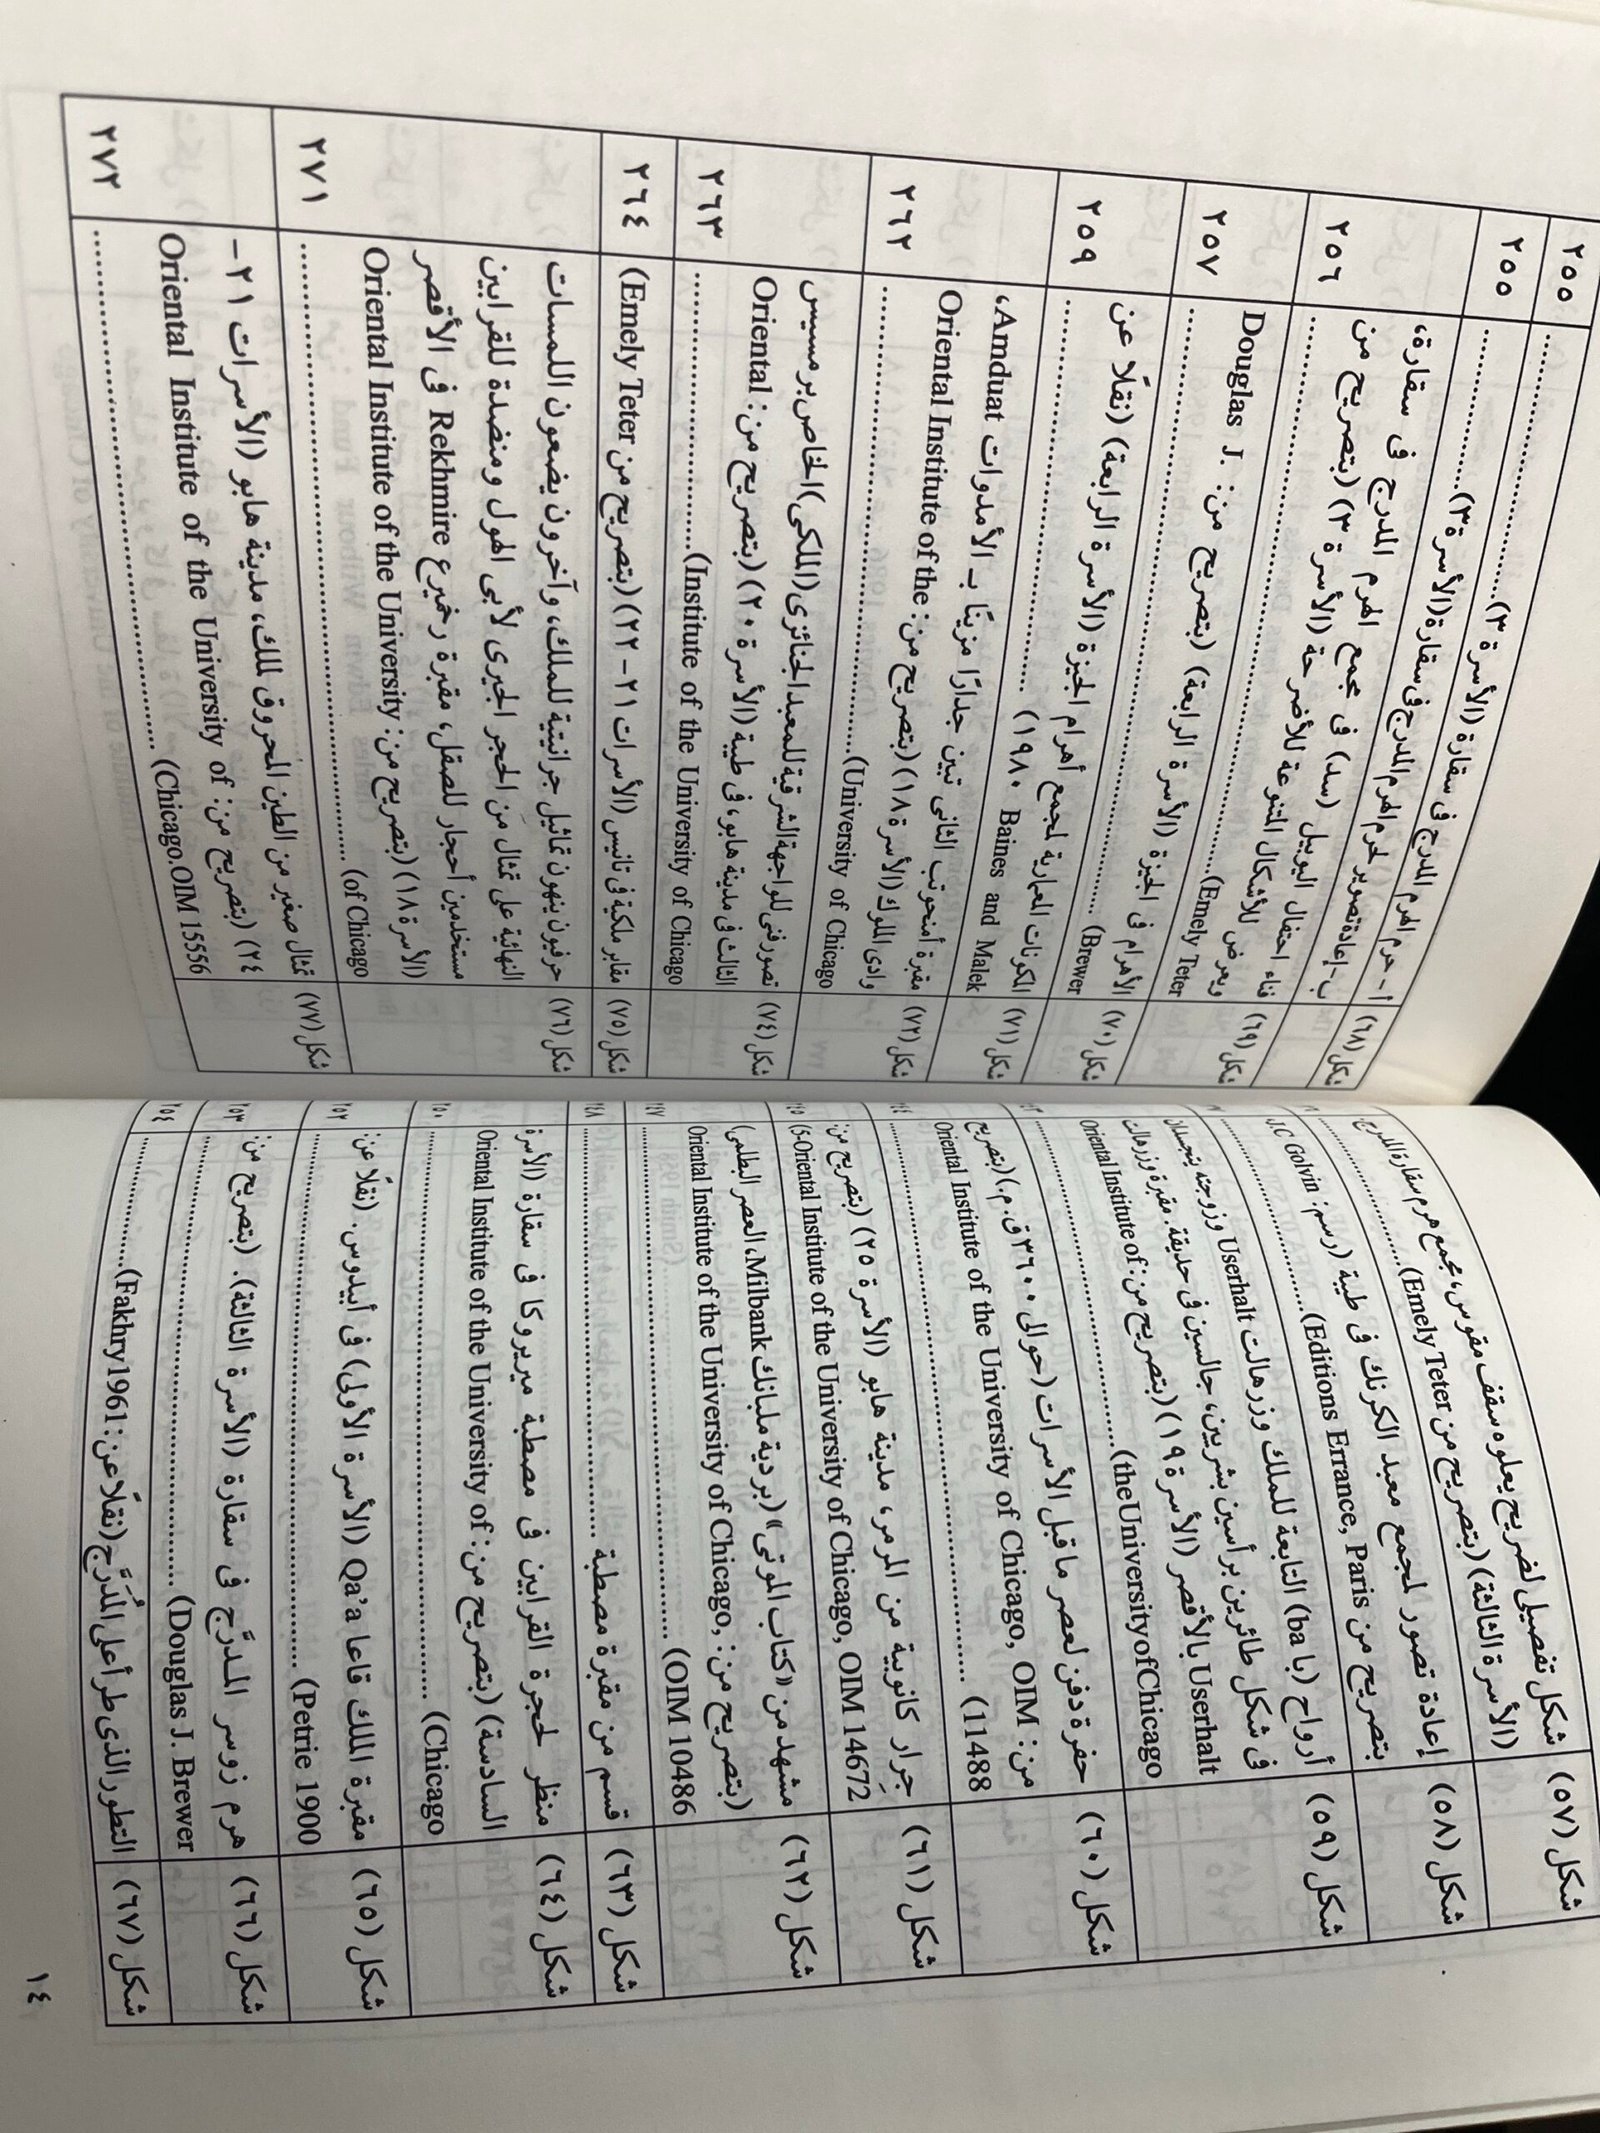 شكل (٥٧)
شكل تفصيلى لضريح يعلوه سقف مقوس، مجمع هرم سقارة المدرج
(الأسرة الثالثة) (بتصريح من Emely Teter)
شكل (٥٨)
إعادة تصور لمجمع معبد الكرنك فى طيبة (رسم: J.C Golvin.
بتصريح من Editions Errance, Paris)
شكل (٥٩)
أرواح (با ba) التابعة للملك وزرهالت Userhalt وزوجته يتجسدان
فى شكل طائرين برأسين بشريين، جالسين فى حديقة. مقبرة وزرهالت
Userhalt بالأقصر (الأسرة ١٩) (بتصريح من: Oriental Institute of
the University of Chicago)
شكل (٦٠)
حفرة دفن لعصر ما قبل الأسرات (حوالى ٣٦٠٠ ق. م.) (بتصريح
من: Oriental Institute of the University of Chicago, OIM
11488)
شكل (٦١)
جَرار كانوبية من المرمر، مدينة هابو (الأسرة ٢٥) (بتصريح من:
5-Oriental Institute of the University of Chicago, OIM 14672)
٢٤٥
شكل (٦٢)
مشهد من «كتاب الموتى» (بردية ملبانك Milbank، العصر البطلمى)
(بتصريح من: Oriental Institute of the University of Chicago,
OIM 10486)
٢٤٧
شكل (٦٣)
قسم من مقبرة مصطبة
٢٤٨
شكل (٦٤)
منظر لحجرة القرابين فى مصطبة ميريروكا فى سقارة (الأسرة
السادسة) (بتصريح من: Oriental Institute of the University of
Chicago)
٢٥٠
شكل (٦٥)
مقبرة الملك قاعا Qa'a (الأسرة الأولى) فى أبيدوس. (نقلًا عن:
Petrie 1900)
٢٥٢
شكل (٦٦)
هرم زوسر المدرَّج فى سقارة (الأسرة الثالثة). (بتصريح من:
Douglas J. Brewer)
٢٥٣
شكل (٦٧)
التطور الذى طرأ على المُدَرَّج (نقلًا عن: Fakhry 1961)
٢٥٤
١٤
شكل (٦٨)
أ- حرم الهرم المدرج فى سقارة (الأسرة ٣)
٢٥٥
ب- إعادة تصوير لحرم الهرم المدرج فى سقارة (الأسرة ٣)
٢٥٥
شكل (٦٩)
فناء احتفال اليوبيل (سد) فى مجمع الهرم المدرج فى سقارة،
ويعرض للأشكال المتنوعة للأضرحة (الأسرة ٣) (بتصريح من
Emely Teter)
٢٥٦
شكل (٧٠)
الأهرام فى الجيزة (الأسرة الرابعة) (بتصريح من: Douglas J.
Brewer)
٢٥٧
شكل (٧١)
المكونات المعمارية لمجمع أهرام الجيزة (الأسرة الرابعة) (نقلًا عن
Baines and Malek ١٩٨٠)
٢٥٩
شكل (٧٢)
مقبرة أمنحوتب الثانى تبين جدارًا مزينًا بـ الأمدوات Amduat،
وادى الملوك (الأسرة ١٨) (بتصريح من: Oriental Institute of the
University of Chicago)
٢٦٢
شكل (٧٤)
تصور فنى للواجهة الشرقية للمعبد الجنائزى (الملكى) الخاص برمسيس
الثالث فى مدينة هابو، فى طيبة (الأسرة ٢٠) (بتصريح من: Oriental
Institute of the University of Chicago)
٢٦٣
شكل (٧٥)
مقابر ملكية فى تانيس (الأسرات ٢١-٢٢) (بتصريح من Emely Teter)
٢٦٤
شكل (٧٦)
حرفيون ينهون تماثيل جرانيتية للملك، وآخرون يضعون اللمسات
النهائية على تمثال مَن الحجر الجيرى لأبى الهول ومنضدة للقرابين
مستخدمين أحجار للصقل، مقبرة رخميرع Rekhmire فى الأقصر
(الأسرة ١٨) (بتصريح من: Oriental Institute of the University
of Chicago)
٢٧١
شكل (٧٧)
تمثال صغير من الطين المحروق لملك، مدينة هابو (الأسرات ٢١-
٢٤) (بتصريح من: Oriental Institute of the University of
Chicago.OIM 15556)
٢٧٢